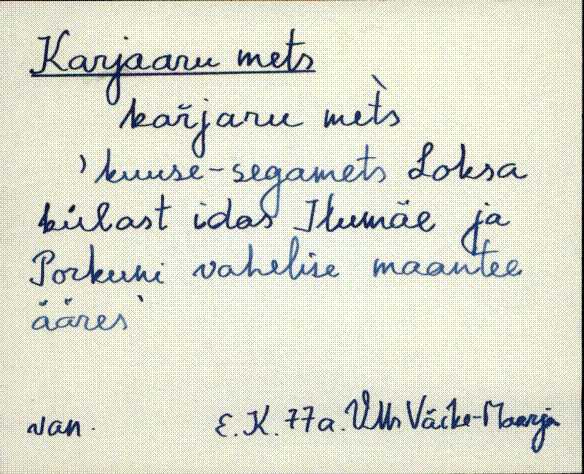 Karjaaru mets
kar̆jaru met̀s
’kuuse-segamets Loksa
külast idas Ilumäe ja
Porkuni vahelise maantee
ääres‛
van.
E.K. 77a. Väike-Maarja